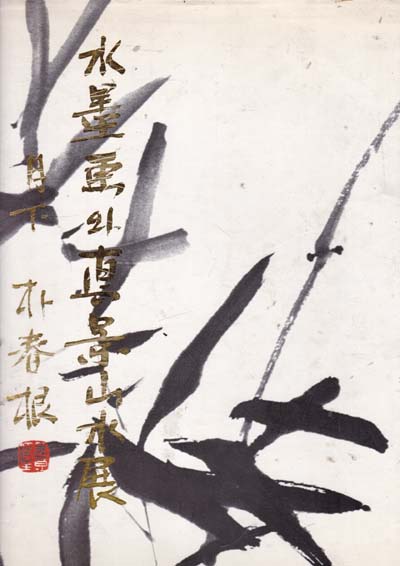 水墨畵와 眞景山水展
月下 朴春根